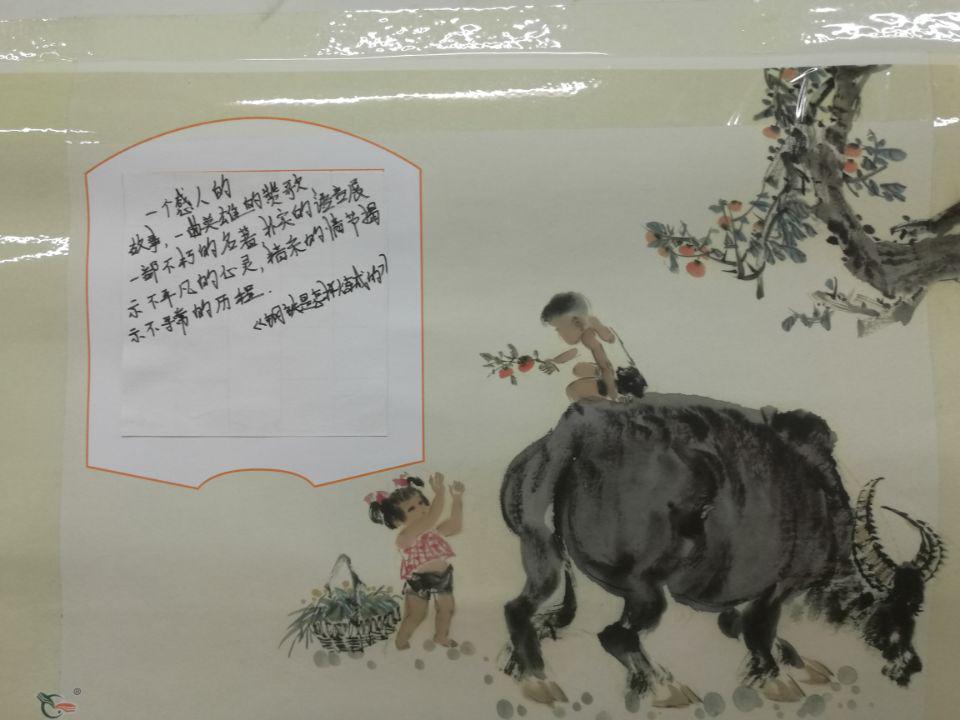 一个感人的
故事,一曲英雄的赞歌
一部不朽的名著,朴实的语言展
示不平凡的心灵,精采的情节揭
示不寻常的历程.
《钢铁是怎样炼成的》
®